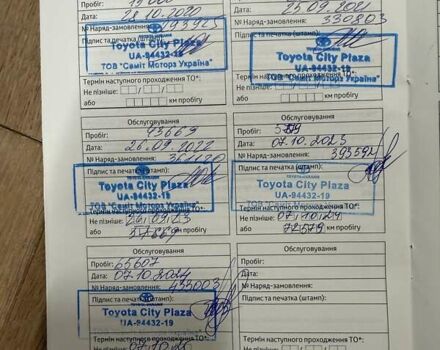 Пробіг:
Дата: 28.10.2020
№ Наряд-замовлення: 293923
Підпис та печатка (штамп):
TOYOTA-UKRAINE
Toyota City Plaza
UA-94432-19
ТОВ "Саміт Моторз Україна"
Термін наступного проходження ТО*:
Не пізніше:
або км пробігу
Дата: 25.09.2021
№ Наряд-замовлення: 330803
Підпис та печатка (штамп):
Toyota City Plaza
UA-94432-19
ТОВ "Саміт Моторз Україна"
Термін наступного проходження ТО*:
Не пізніше:
або км пробігу
Обслуговування
Пробіг: 43669
Дата: 26.09.2022
№ Наряд-замовлення:
Toyota City Plaza
UA-94432-19
ТОВ "Саміт Моторз Україна"
Не пізніше:
або км пробігу
Обслуговування
Пробіг:
Дата: 07.10.2023
№ Наряд-замовлення: 393592
Підпис та печатка (штамп):
Toyota City Plaza
UA-94432-19
Термін наступного проходження ТО*:
Не пізніше: 07.10.24
або 72579 км пробігу
Обслуговування
Пробіг: 65607
Дата: 07.10.2024
№ Наряд-замовлення: 433003
Підпис та печатка (штамп):
TOYOTA-UKRAINE
Toyota City Plaza
UA-94432-19
Не пізніше:
Обслуговування
Пробіг:
Дата:
№ Наряд-замовлення:
Підпис та печатка (штамп):
Термін наступного проходження ТО*:
Не пізніше: